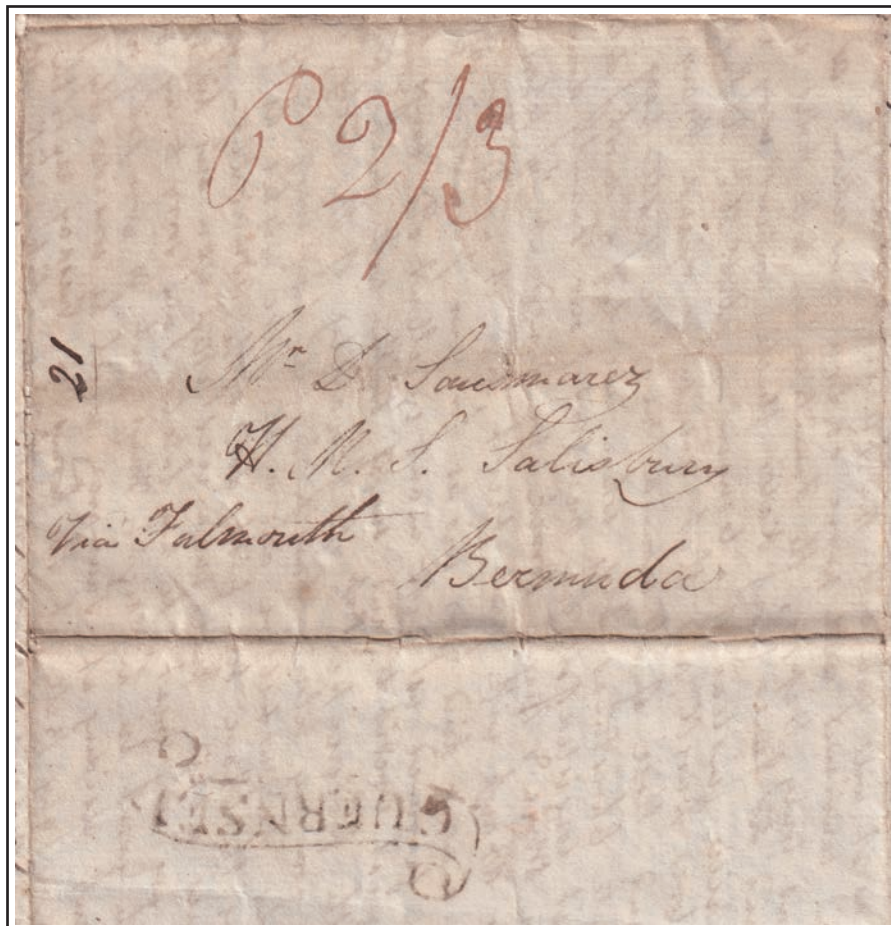 P 2/3
21
Mr D. Sausmarez
H. M. S. Salisbury
Via Falmouth
Bermuda
GUERNSEY